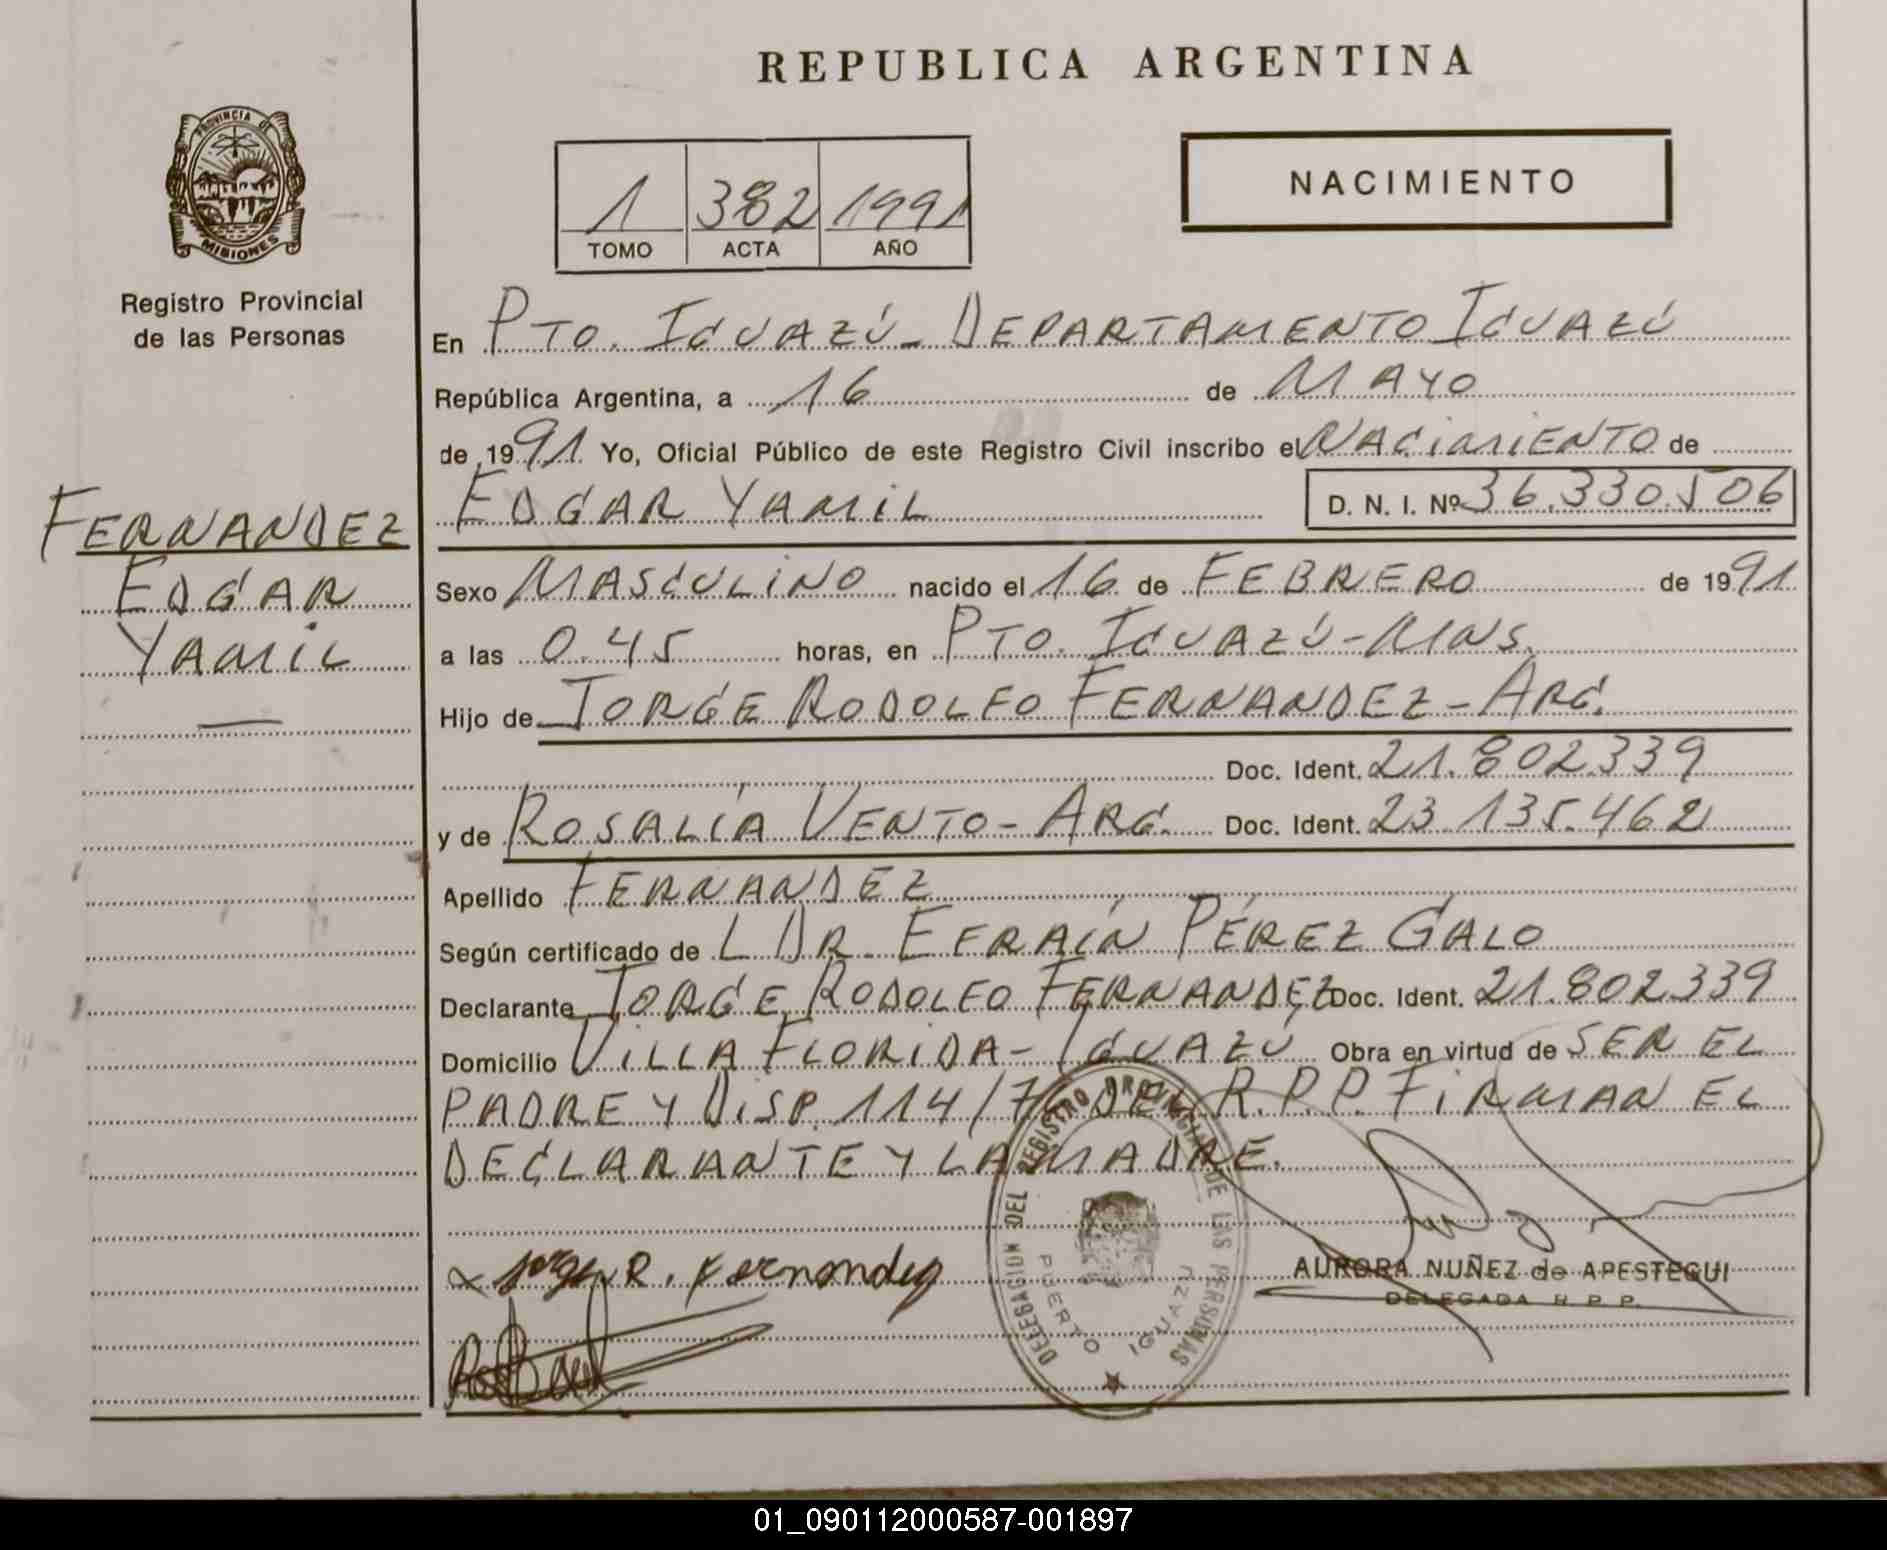 REPUBLICA ARGENTINA
PROVINCIA DE MISIONES
Registro Provincial
de las Personas
1 382 1991
TOMO ACTA AÑO
NACIMIENTO
En PTO. IGUAZÚ - DEPARTAMENTO IGUAZÚ
República Argentina, a 16 de MAYO
de 1991 Yo, Oficial Público de este Registro Civil inscribo el NACIMIENTO de
EDGAR YAMIL D. N. I. Nº 36.330.506
FERNANDEZ
EDGAR
YAMIL
Sexo MASCULINO nacido el 16 de FEBRERO de 1991
a las 0.45 horas, en PTO. IGUAZÚ - MNS.
Hijo de JORGE RODOLFO FERNANDEZ - ARG.
Doc. Ident. 21.802.339
y de ROSALÍA VENTO - ARG. Doc. Ident. 23.135.462
Apellido FERNANDEZ
Según certificado de L DR. EFRAÍN PÉREZ GALO
Declarante JORGE RODOLFO FERNANDEZ Doc. Ident. 21.802.339
Domicilio VILLA FLORIDA - IGUAZÚ Obra en virtud de SER EL
PADRE Y DISP. 114/7 DEL R.P.P. FIRMAN EL
DECLARANTE Y LA MADRE.
Jorge R. Fernandez
DELEGACION DEL REGISTRO PROVINCIAL DE LAS PERSONAS
PUERTO IGUAZU
AURORA NUÑEZ de APESTEGUI
DELEGADA R. P. P.
01_090112000587-001897